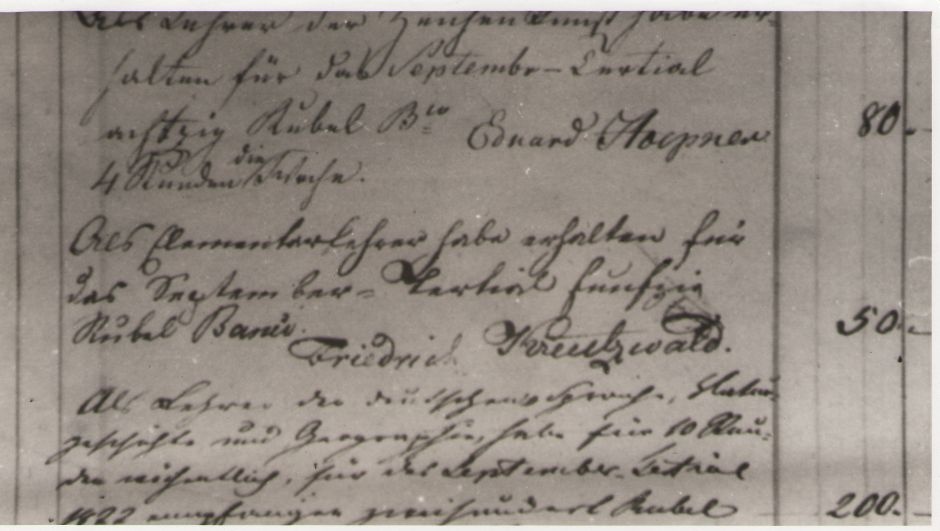 Als Lehrer der Zeichenkunst habe er-
halten für das September-Tertial
achtzig Rubel Bco Eduard Hoepner 80.
4 Stunden die Woche.
Als Elementarlehrer habe erhalten für
das September-Tertial funfzig
Rubel Banco. 50.
Friedrich Kreutzwald.
Als Lehrer der deutschen Sprache, Natur-
geschichte und Geographie, habe für 10 Stun-
den wöchentlich, für das September-Tertial
1822 empfangen zweihundert Rubel 200.